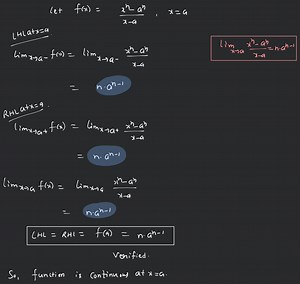 let f(x) = xⁿ-aⁿ/x-a , x=a
LHL at x=a
lim x→a- f(x) = lim x→a- xⁿ-aⁿ/x-a
lim x→a xⁿ-aⁿ/x-a = n·aⁿ⁻¹
= n·aⁿ⁻¹
RHL at x=a
lim x→a+ f(x) = lim x→a+ xⁿ-aⁿ/x-a
= n·aⁿ⁻¹
lim x→a f(x) = lim x→a xⁿ-aⁿ/x-a
= n·aⁿ⁻¹
LHL = RHL = f(a) = n·aⁿ⁻¹
Verified.
So, function is continuous at x=a.